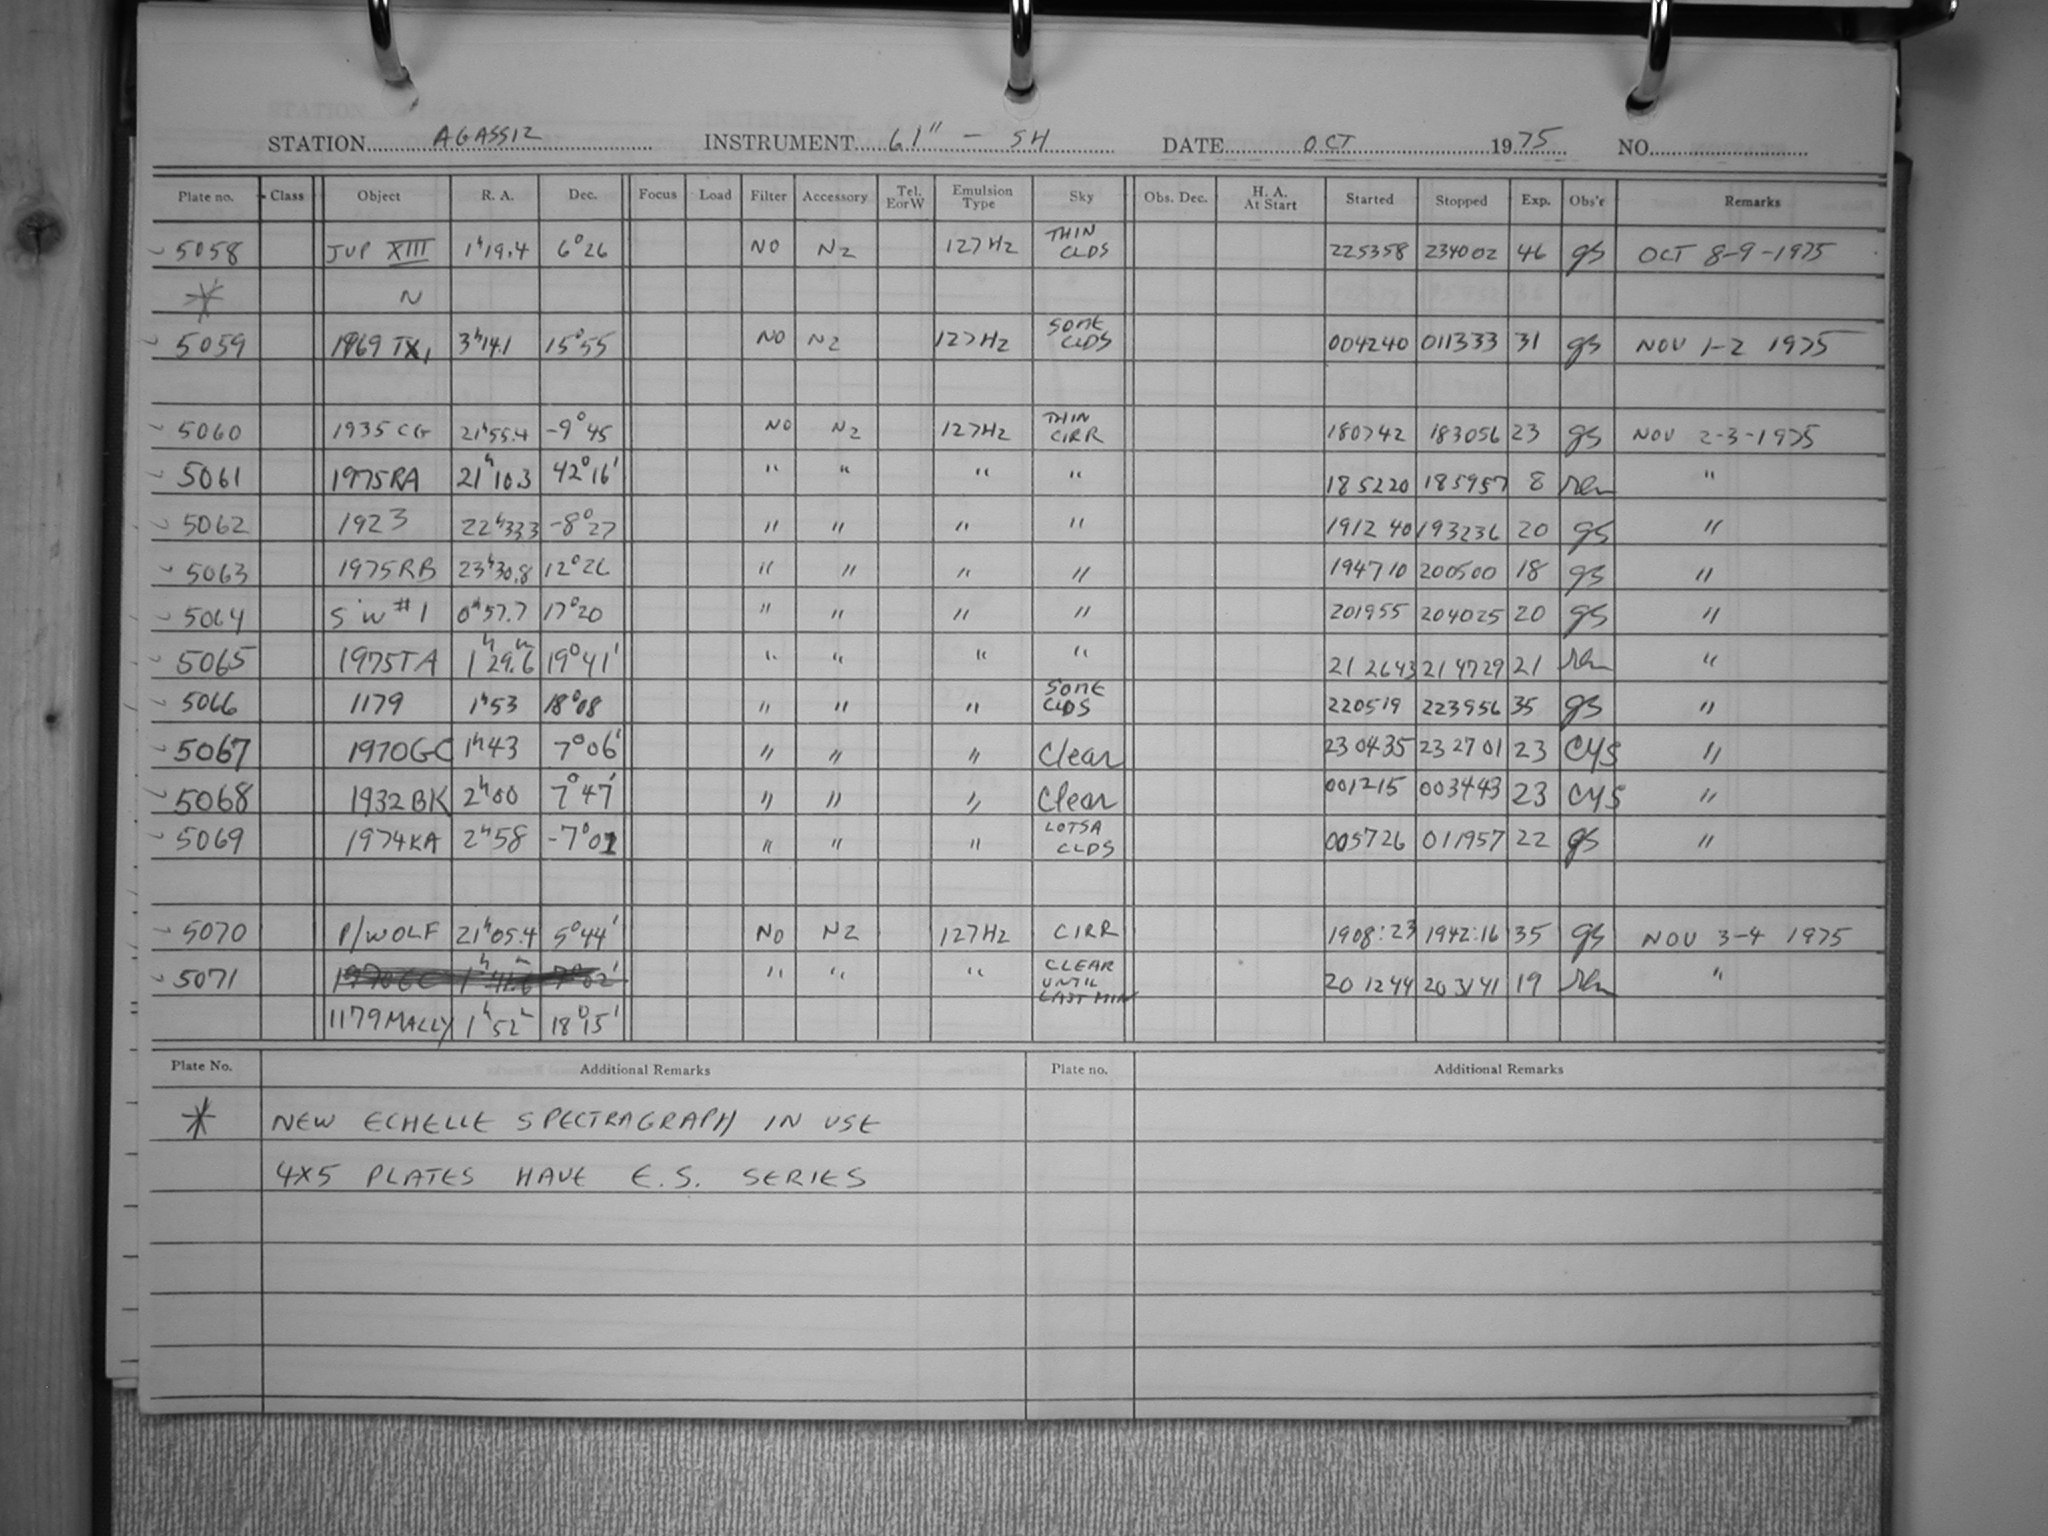 STATION AGASSIZ INSTRUMENT 61" - SH DATE OCT 1975 NO.
Plate no. Class Object R. A. Dec. Focus Load Filter Accessory Tel. E or W Emulsion Type Sky Obs. Dec. H. A. At Start Started Stopped Exp. Obs'r Remarks
5058 JUP XIII 1h19.4 6°26 NO N2 127Hz THIN CLDS 225358 234002 46 gs OCT 8-9-1975
* N
5059 1969 TX1 3h14.1 15°55 NO N2 127Hz SOME CLDS 004240 011333 31 gs NOV 1-2 1975
5060 1935 CG 21h55.4 -9°45 NO N2 127Hz THIN CIRR 180742 183056 23 gs NOV 2-3-1975
5061 1975RA 21h10.3 42°16' " " " " 185220 185957 8 "
5062 1923 22h33.3 -8°27 " " " " 191240 193236 20 gs "
5063 1975RB 23h30.8 12°26 " " " " 194710 200500 18 gs "
5064 SW #1 0h57.7 17°20 " " " " 201955 204025 20 gs "
5065 1975TA 1h29.6m 19°41' " " " " 212643 214729 21 "
5066 1179 1h53 18°08 " " " SOME CLDS 220519 223956 35 gs "
5067 1970GC 1h43 7°06' " " " Clear 230435 232701 23 CYS "
5068 1932BK 2h00 7°47' " " " Clear 001215 003443 23 CYS "
5069 1974KA 2h58 -7°01 " " " LOTSA CLDS 005726 011957 22 gs "
5070 P/WOLF 21h05.4 5°44' NO N2 127Hz CIRR 1908:23 1942:16 35 gs NOV 3-4 1975
5071 " " " CLEAR UNTIL LAST MIN 201244 203141 19 "
1179MALLY 1h52m 18°15'
Plate No. Additional Remarks Plate no. Additional Remarks
* NEW ECHELLE SPECTRAGRAPH IN USE
4X5 PLATES HAVE E.S. SERIES